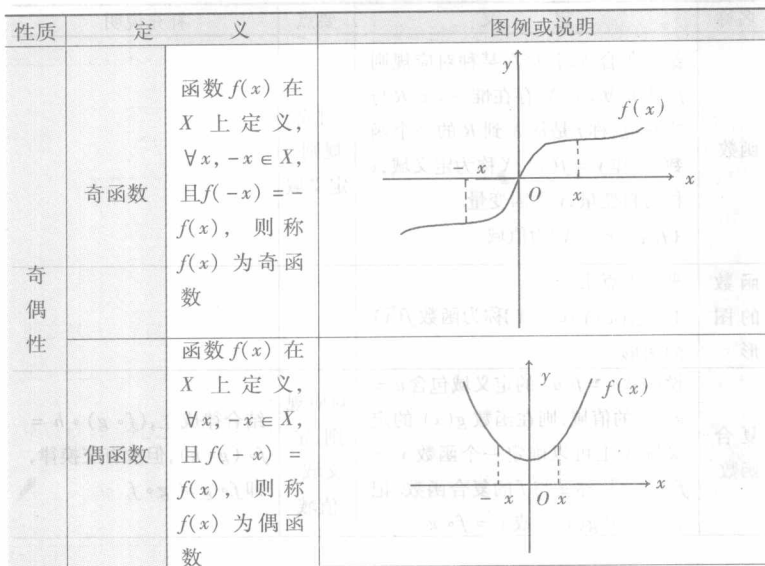 性质 定 义 图例或说明
奇
偶
性
奇函数
函数 f(x) 在
X 上定义，
∀x, -x ∈ X,
且f( -x) = -
f(x)， 则 称
f(x) 为奇函
数
y
f(x)
- x
O
x
x
偶函数
函数 f(x) 在
X 上定义，
∀x, -x ∈ X,
且 f( -x) =
f(x)， 则 称
f(x) 为偶函
数
y
f(x)
- x
O
x
x